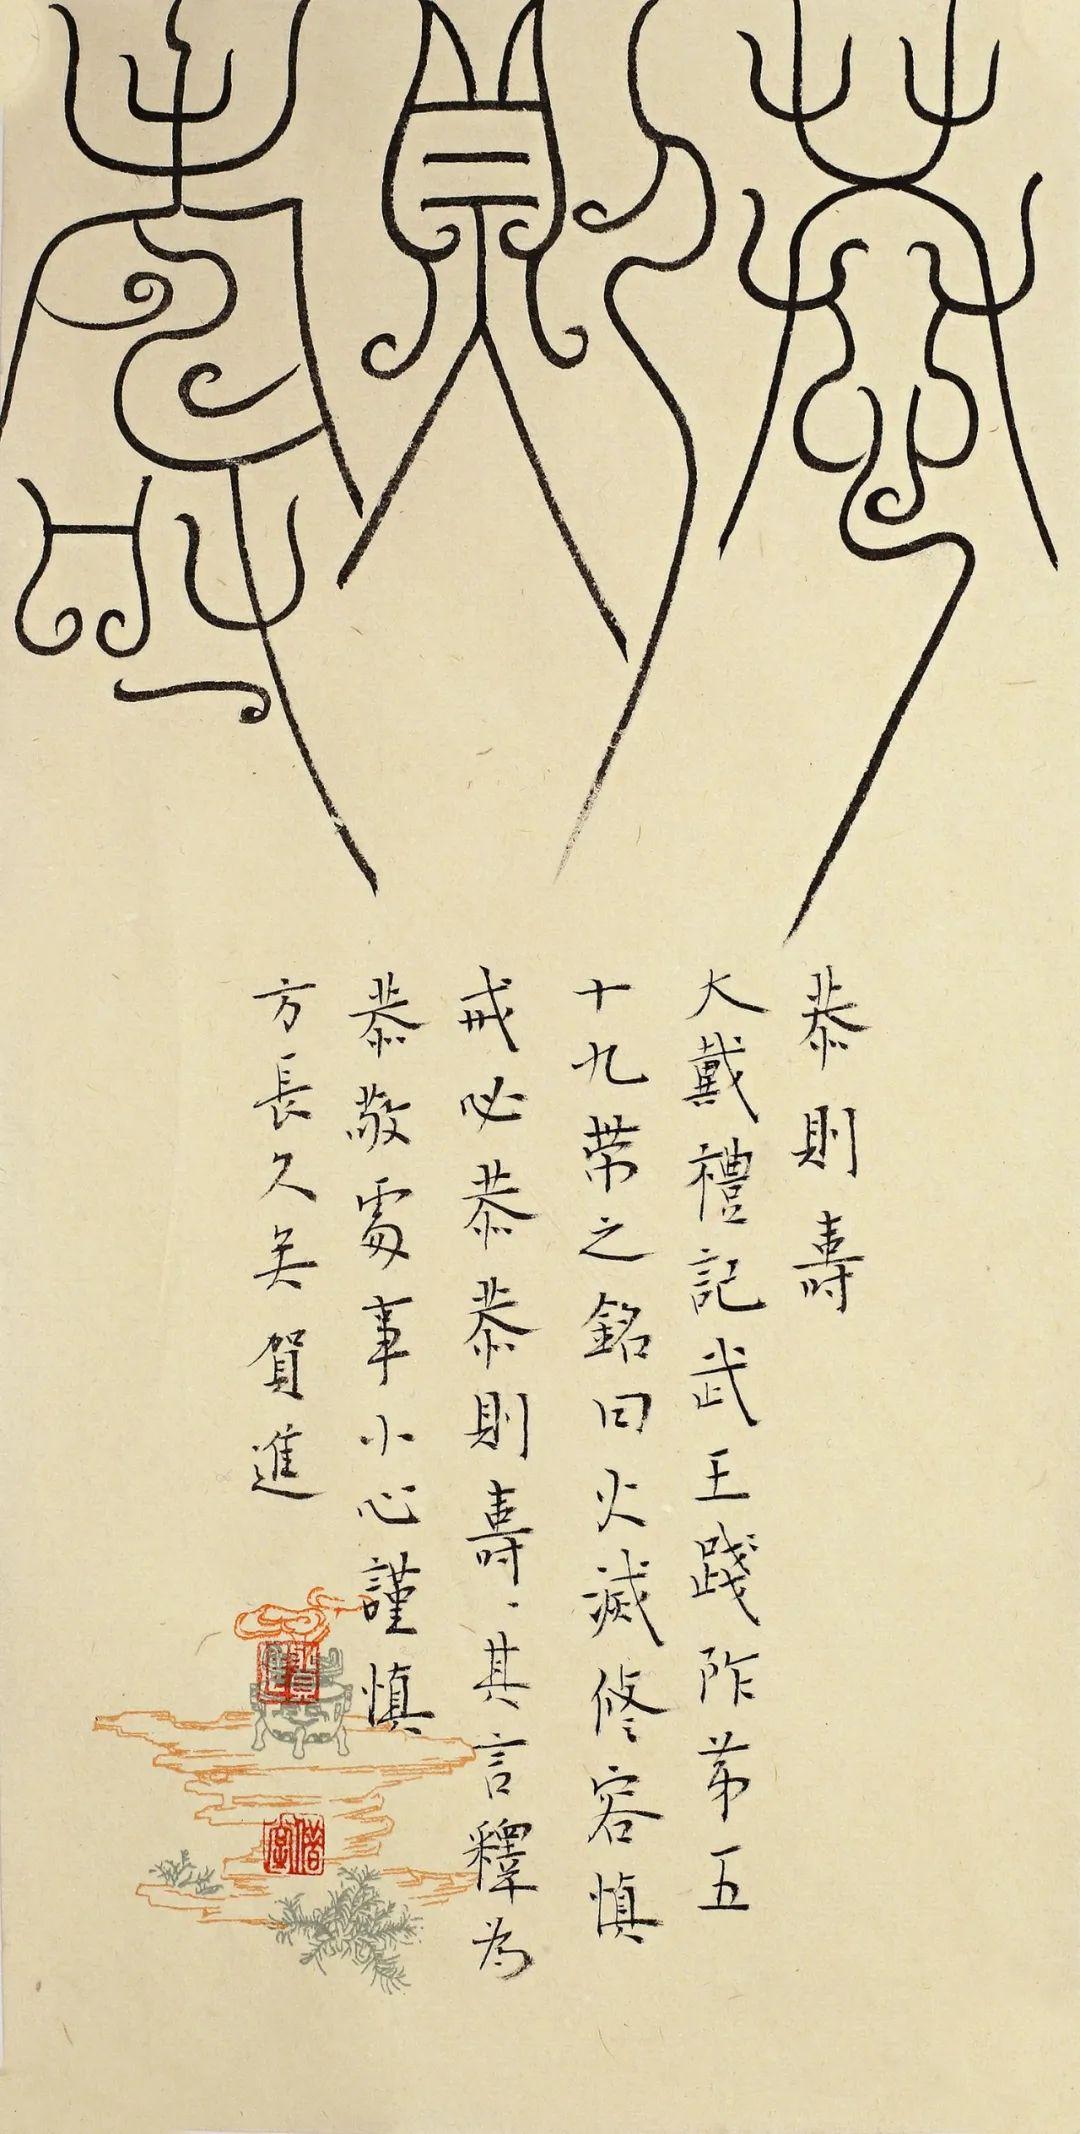 恭則壽
恭則壽
大戴禮記武王踐阼苐五
十九帶之銘曰火滅修容慎
戒必恭恭則壽、其言釋為
恭敬處事小心謹慎
方長久矣 賀進
賀進